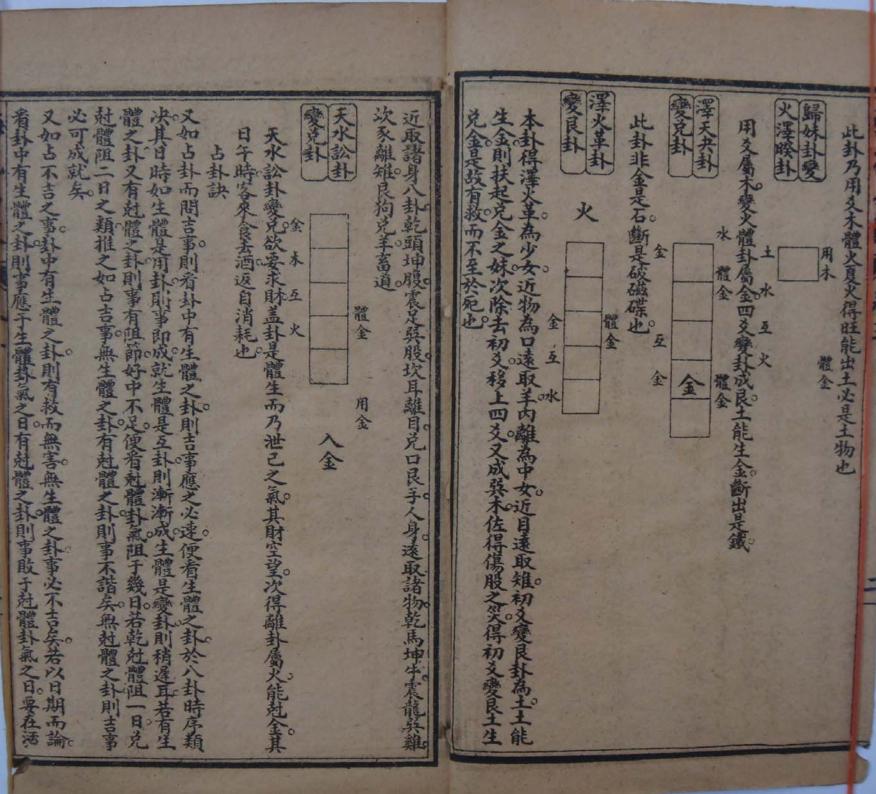 此卦乃用爻木體火頁爻得旺能出土必是土物也
歸妹卦變
火澤睽卦
用木
體金
用爻屬木變火體卦屬金四爻變卦成艮土能生金斷出是鐵
土水互火
澤天夬卦
變兑卦
水體金
金
體金
此卦非金是石斷是破磁碟也
金互金
澤火革卦
變艮卦
火
體金
金互水
本卦得澤火革為少女近物為口遠取羊内離為中女近目遠取雉初爻變艮卦為土土能
生金則扶起兑金之妹次除去初爻移上四爻又成巽木佐得傷股之災得初爻變艮土生
兑金是故有救而不至於死也
近取諸身八卦乾頭坤腹震足巽股坎耳離目兑口艮手人身遠取諸物乾馬坤牛震龍巽雞
次豕離雉艮狗兑羊畜道
天水訟卦
變兑卦
體金
用金
入金
金木互火
天水訟卦變兑欲要求財盖卦是體生而乃泄己之氣其財空望次得離卦屬火能尅金其
日午時客來食去酒返自消耗也
占卦訣
又如占卦而問吉事則看卦中有生體之卦則吉事應之必速便看生體之卦於八卦時序類
决其日時如生體是用卦則事即成就生體是互卦則漸漸成生體是變卦則稍遲耳若有生
體之卦又有尅體之卦則事有阻節好中不足便看尅體卦氣阻于幾日若乾尅體阻一日兑
尅體阻二日之類推之如占吉事無生體之卦有尅體之卦則事不諧矣無尅體之卦則吉事
必可成就矣
又如占不吉之事卦中有生體之卦則有救而無害無生體之卦事必不吉矣若以日期而論
看卦中有生體之卦則事應于生體卦氣之日有尅體之卦則事敗于尅體卦氣之日要在活